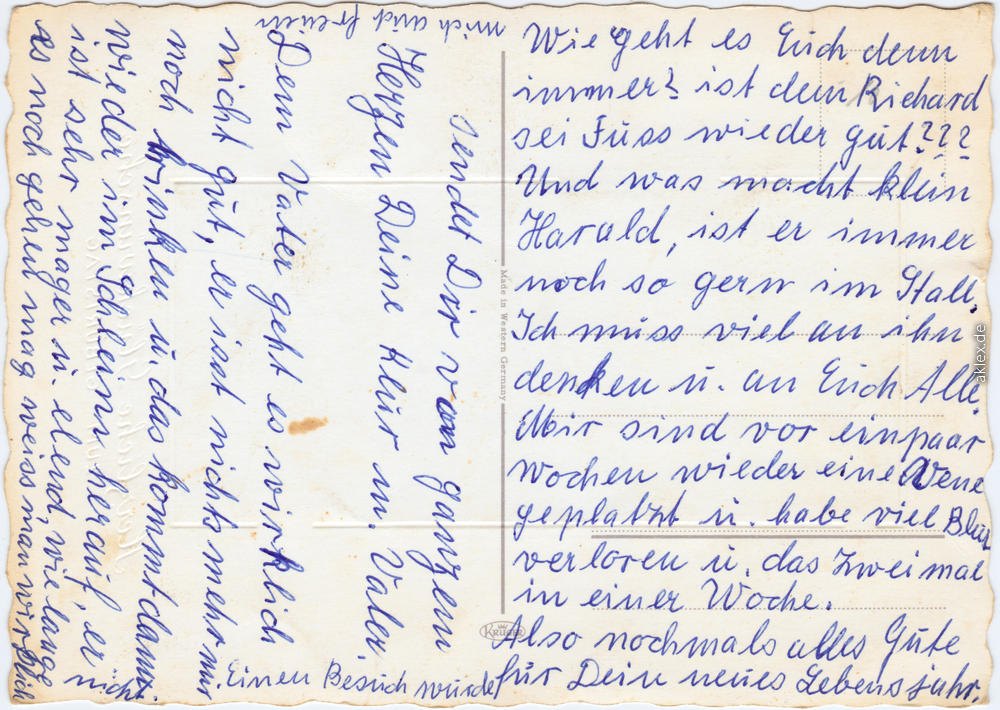 Wie geht es Euch denn
immer? ist dem Richard
sei Fuss wieder gut???
Und was macht klein
Harald, ist er immer
noch so gern im Stall.
Ich muss viel an ihn
denken u. an Euch Alle.
Mir sind vor einpaar
Wochen wieder eine Vene
geplatzt u. habe viel Blut
verloren u. das Zweimal
in einer Woche.
Also nochmals alles Gute
für Dein neues Lebensjahr,
sendet Dir von ganzem
Herzen Deine u. Vater
Dem Vater geht es wirklich
nicht gut, er isst nichts mehr nur
noch trinken u. das kommt dann
wieder im Schleim herauf, er
ist sehr mager u. elend, wie lange
es noch gehen mag weiss man wirklich
nicht.
Einen Besuch würde
mich auch freuen
Made in Western Germany
KRÜGER
aklex.de